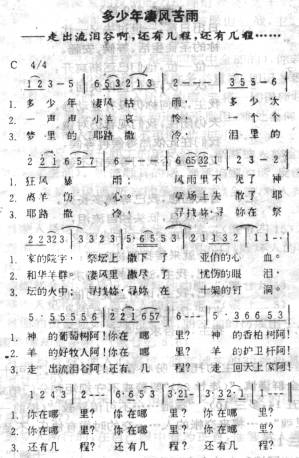 多少年凄风苦雨
——走出流泪谷啊,还有几程,还有几程……
C 4/4
1 2 3 - 5 | 6 5 3 2 1 3 | 2 - - - | 3 5 5 - 6 |
1. 多 少 年 凄 风 枯 雨, 多 少 次
2. 一 声 声 小 羊 哀 怜, 一 个 个
3. 梦 里 的 耶 路 撒 冷, 泪 里 的
2 2 1 6 5 7 | 6 - - - | 6 6 5 3 2 1 | 2 3 - 2 |
1. 狂 风 暴 雨; 风雨里 不 见了 神
2. 离 羊 伤 心; 草场上 失 散了 耶
3. 耶 路 撒 冷; 寻找妳·寻 妳在 祭
2 2 3 2 3 | 3 3 2 2 3 | 5·6 5 5 3 | 2 1 1 3 2 | 1 - - · |
1. 家的院宇, 祭坛上 撒下 了 亚伯的心 血。
2. 和华羊群。 凄风里 撒尽 了 忧伤的眼 泪,
3. 坛的火中; 寻找妳·寻妳 在 十架的钉 洞。
5 · 5 5 5 5 6 | 2 2 1 6 5 7 | 6 - - - | 5 · 5 5 5 5 6 |
1. 神 的葡萄树阿!你在 哪 里? 神 的香柏树阿!
2. 羊 的好牧人阿!你在 哪 里? 羊 的护卫杆阿!
3. 走 出流泪谷阿!还有 几 程? 走 回天上家阿!
1 2 4 3 | 2 - - - | ·6·6 5 3 | 3·2 1 - | 3·3 2·1 | 1 - - - |
1. 你在哪 里? 你在哪 里? 你在哪 里?
2. 你在哪 里? 你在哪 里? 你在哪 里?
3. 还有几 程? 还有几 程? 还有几 程?